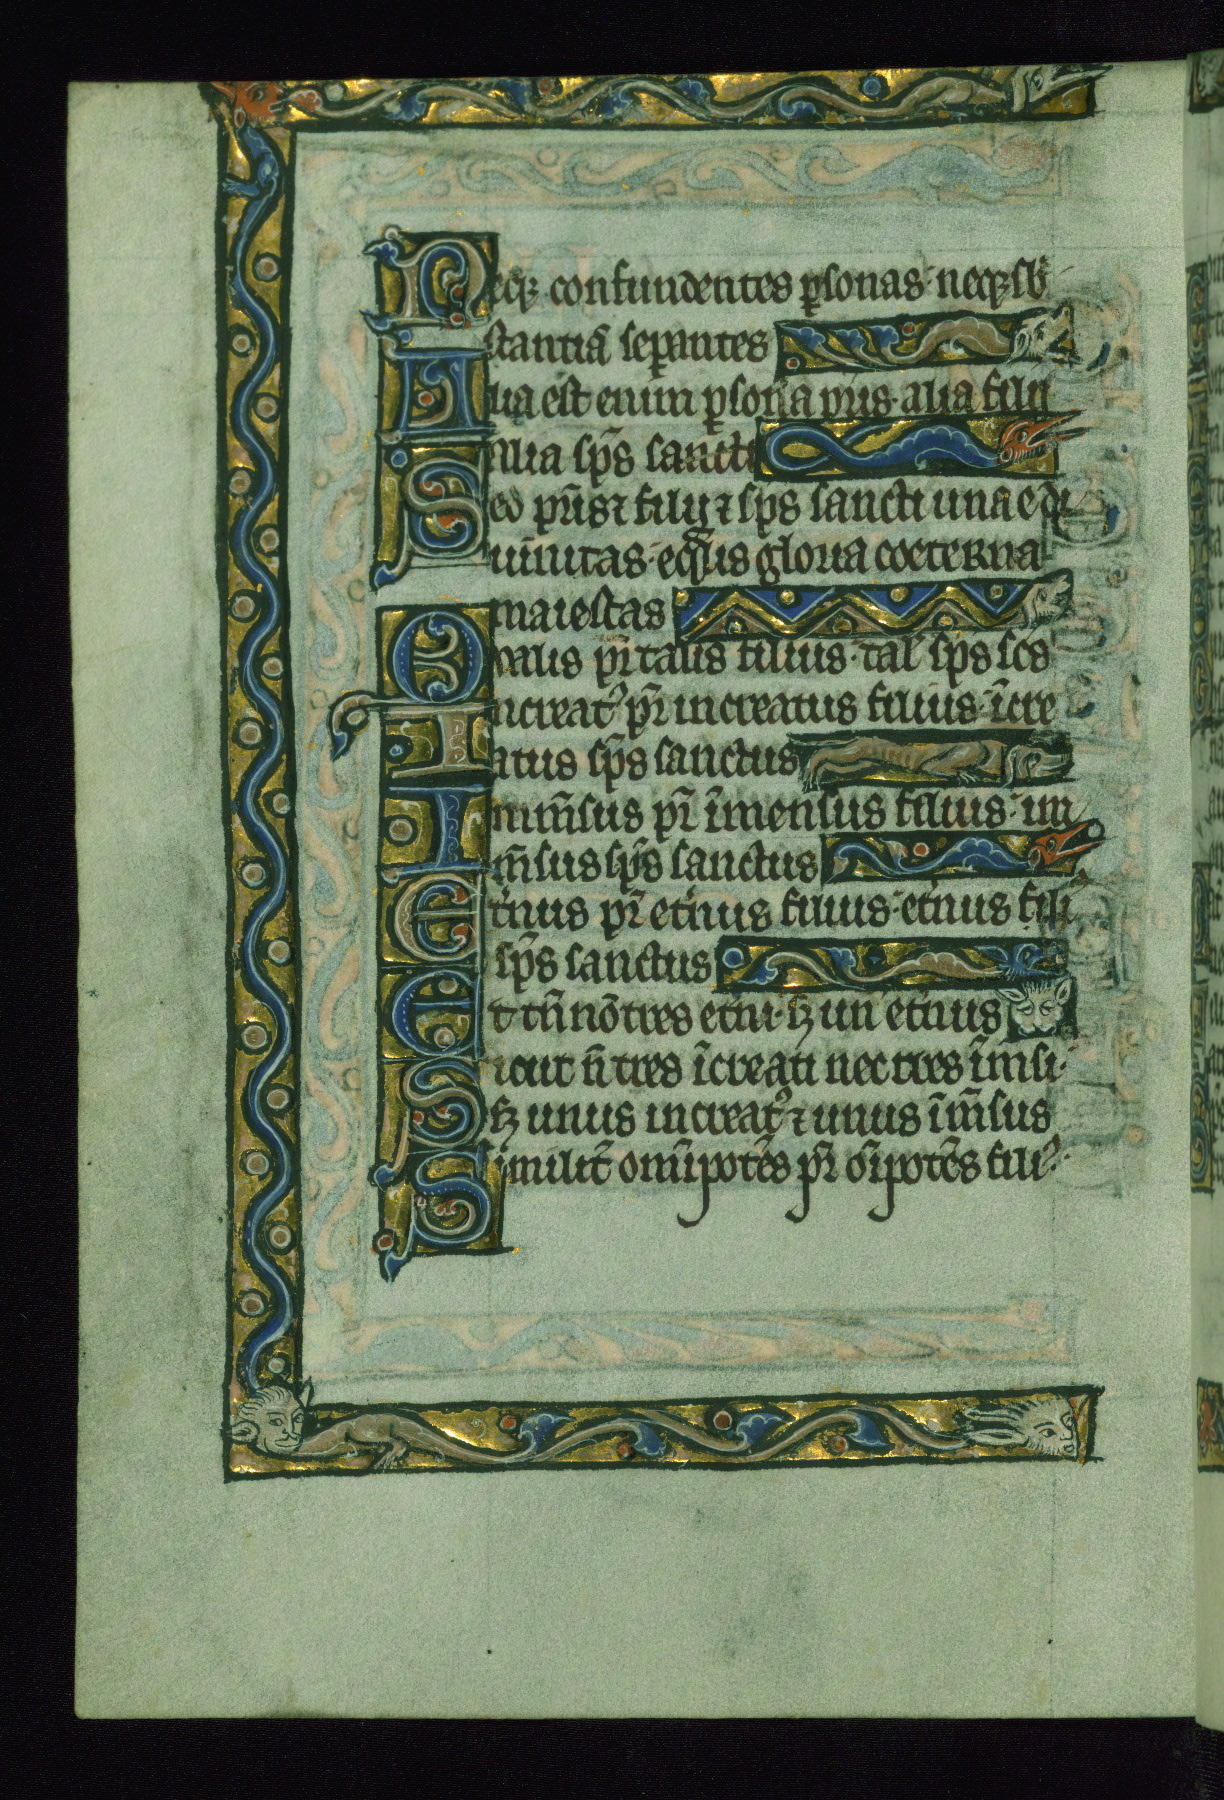 Neqꝫ confundentes ꝑsonas· neqꝫ sb̄
stantiā seꝑantes
Alia est enim ꝑsona pr̄is· alia filij
Alia sp̄s sancti
Sed pr̄is ⁊ filij ⁊ sp̄s sancti una e di
uinitas· eqͣlis gloria coeterna
maiestas
Qualis pr̄ talis filius· tal̄ sp̄s sc̄s
Increat᷒ pr̄ increatus filius· īcre
atus sp̄s sanctus
Inmēsus pr̄ īmensus filius· im
m̄sus sp̄s sanctus
Et̄nus pr̄ et̄nus filius· et̄nus fili
sp̄s sanctus
Et tn̄ nō tres et̄ni· sꝫ un᷒ et̄nus
Sicut n̄ tres īcreati nec tres īm̄si·
sꝫ unus increat᷒ ⁊ unus īm̄sus
Similit̄ om̄ipotēs pr̄ oīpotēs fili᷒·